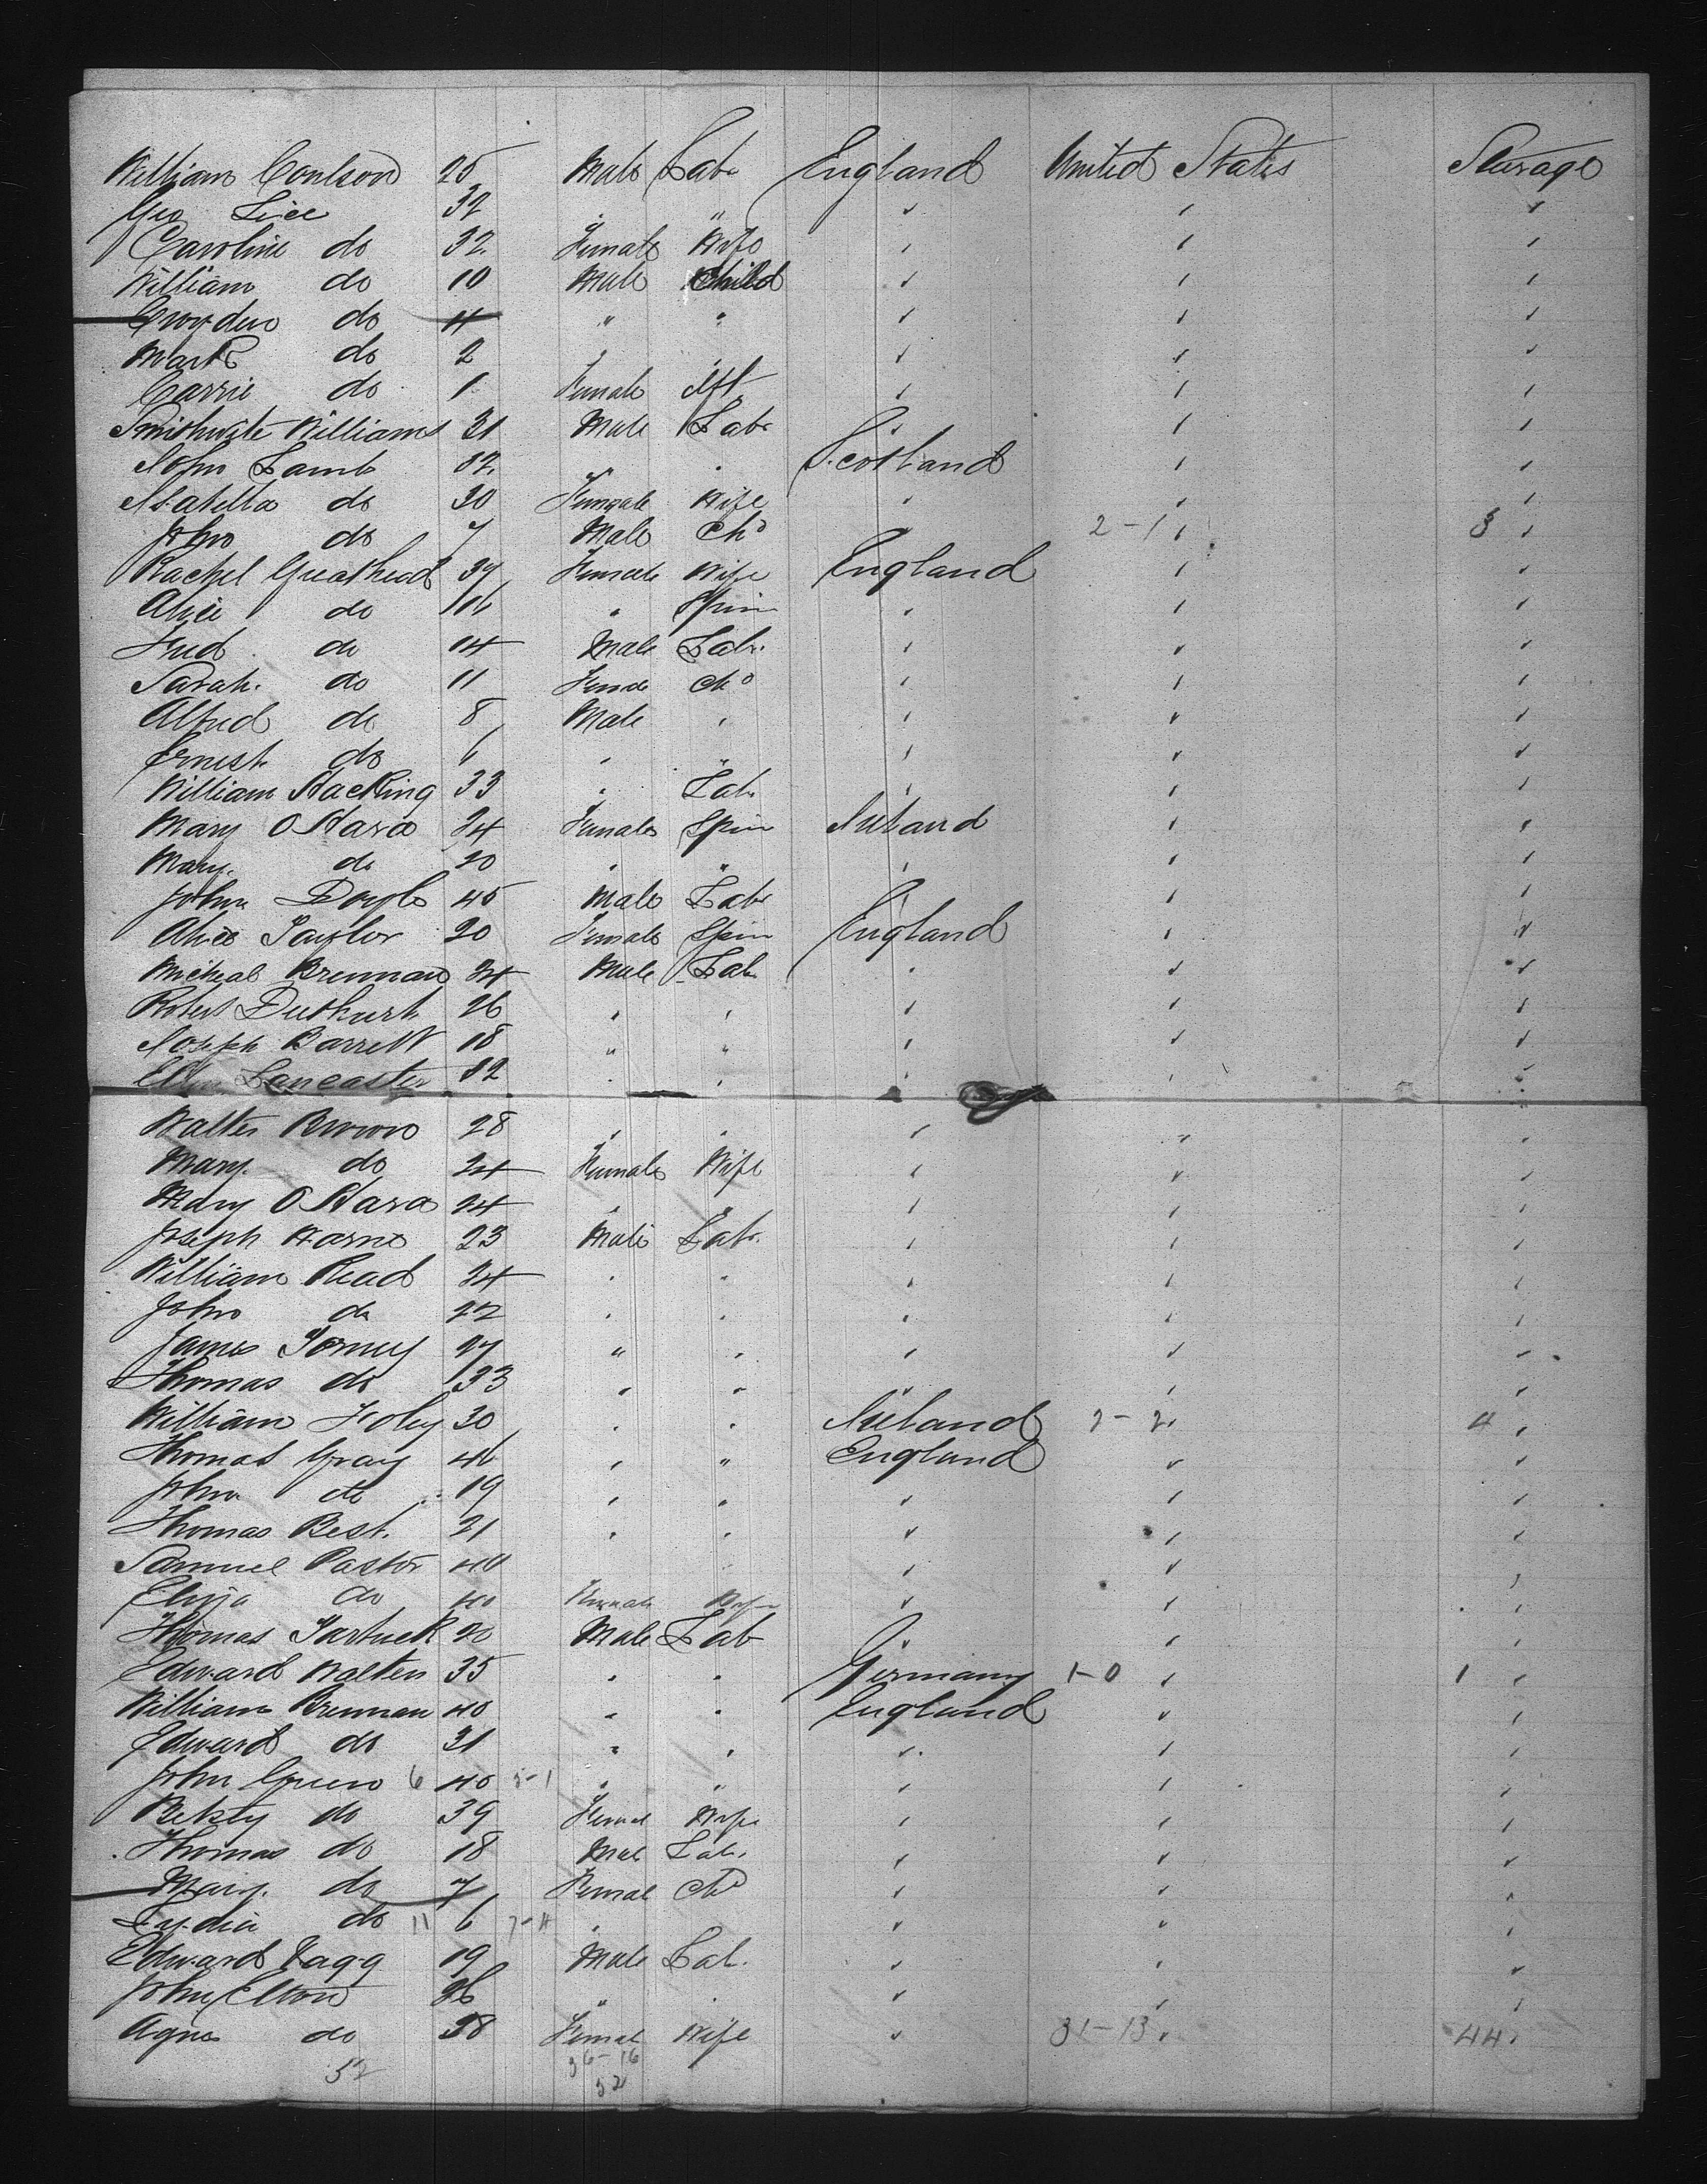 William Coulson 25 Male Labr England United States Steerage
Geo Lice 32 " " " " "
Caroline do 32 Female Wife " " "
William do 10 Male Child " " "
Croyden do 4 " " " " "
Mark do 2 " " " " "
Carrie do 1 Female Inft " " "
Williams 31 Male Labr " " "
John Lamb 32 " " Scotland " "
Isabella do 30 Female Wife " " "
John do 7 Male Chd " 2-1 " 3 "
Rachel Greathead 37 Female Wife England " "
Alice do 16 " Spin " " "
Fred do 14 Male Labr " " "
Sarah do 11 Female Chd " " "
Alfred do 8 Male " " " "
Ernest do 6 " " " " "
William Hacking 33 " Labr " " "
Mary O Hara 24 Female Spin Ireland " "
Mary do 20 " " " " "
John Doyle 45 Male Labr " " "
Alice Taylor 20 Female Spin England " "
Micheal Brennan 24 Male Labr " " "
Robert 26 " " " " "
Joseph Barrett 18 " " " " "
Lancaster 32 " " " " "
Walter Brown 28 " " " " "
Mary do 24 Female Wife " " "
Mary O Hara 24 " " " " "
Joseph Harne 23 Male Labr. " " "
William Read 24 " " " " "
John do 22 " " " " "
James Torney 27 " " " " "
Thomas do 33 " " " " "
William Foley 30 " " Ireland 2-2 " 4 "
Thomas Gray 46 " " England " "
John do 19 " " " " "
Thomas Best. 21 " " " " "
Samuel Pastor 40 " " " "
Eliza do 40 Female Wife " " "
Thomas 20 Male Lab " " "
Edward Walters 35 " " Germany 1-0 " 1 "
William Brennan 40 " " England " "
Edward do 31 " " " " "
John Green 6 40 5-1 " " " " "
Betsy do 39 Femal Wife " " "
Thomas do 18 Male Lab. " " "
Mary do 7 Femal Chd " " "
Lydia do 11 6 7-4 " " " "
Edward Kagg 19 Male Lab. " " "
John Elton 26 " " " " "
Agnes do 38 Femal Wife " 31-13 " 44 "
52 36-16
52